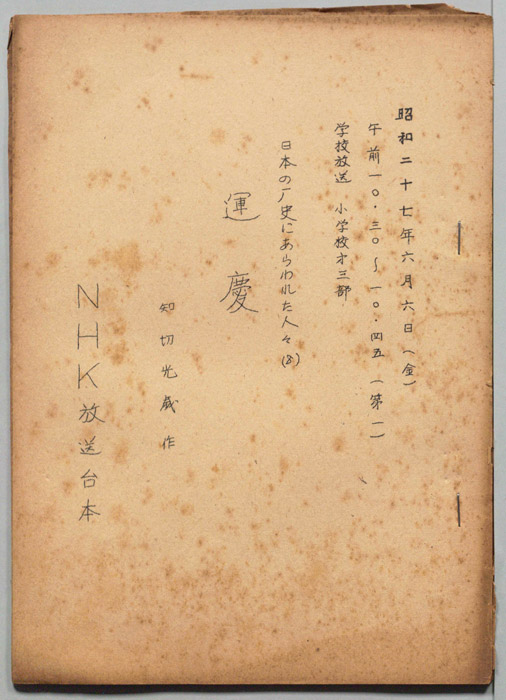 昭和二十七年六月六日(金)
午前一〇・三〇〜一〇・四五(第一)
学校放送 小学校才三部
日本の厂史にあらわれた人々(8)
運慶
知切光歳作
NHK放送台本